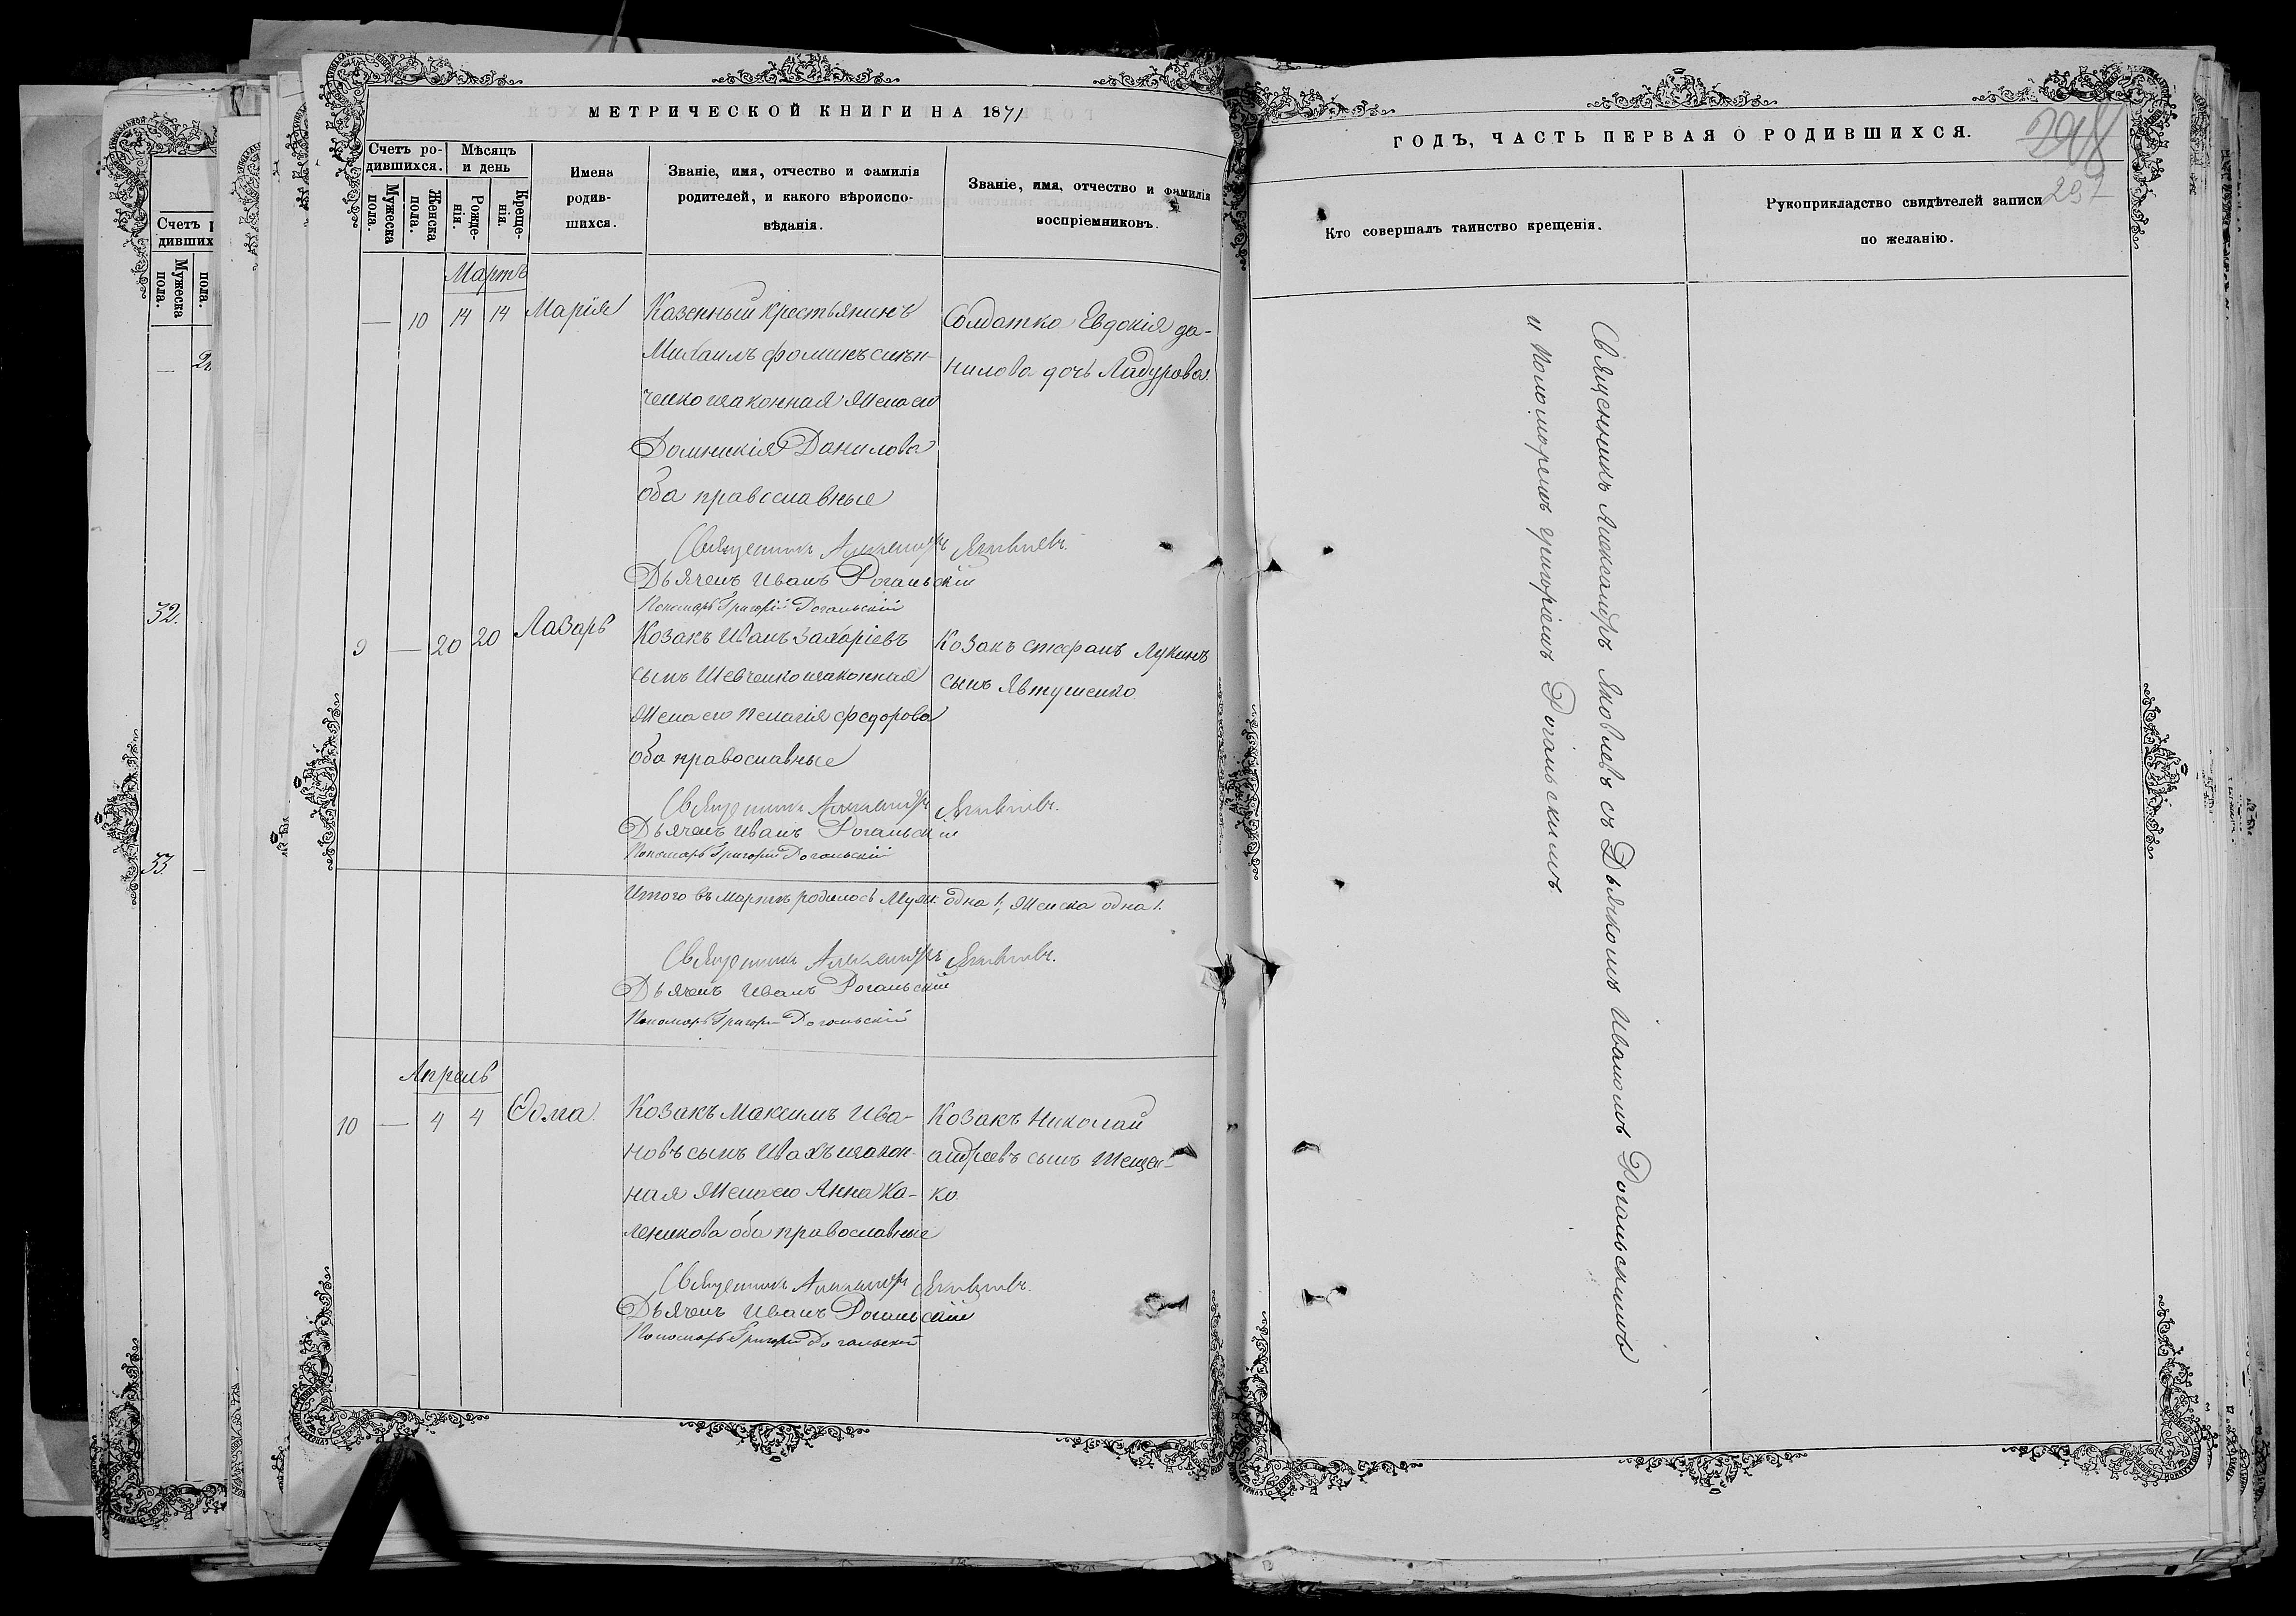 МЕТРИЧЕСКОЙ КНИГИ НА 1871
Счетъ ро-
дившихся.
Мужеска
пола.
Женска
пола.
Мѣсяцъ
и день
Рожде-
нія.
Креще-
нія.
Имена
родив-
шихся.
Званіе, имя, отчество и фамилія
родителей, и какого вѣроиспо-
вѣданія.
Званіе, имя, отчество и фамилія
воспріемниковъ.
Мартъ
— 10 14 14 Марія
Казенный крестьянинъ
Михаилъ Фоминъ сынъ
законная жена его
Домникія Данилова
оба православные
Солдатка Евдокія Да-
нилова дочь Ладурова
Священникъ Александръ Яковлевъ.
Дьячекъ Иванъ Рогальскій
Пономарь Григорій Рогальскій
9 — 20 20 Лазарь
Козакъ Иванъ Захаріевъ
сынъ Шевченко и законная
жена его Пелагія Федорова
оба православные
Козакъ Стефанъ Лукинъ
сынъ Явтушенко
Священникъ Александръ Яковлевъ.
Дьячекъ Иванъ Рогальскій
Пономарь Григорій Рогальскій
Итого въ Мартѣ родилось Муж. одна 1, Женска одна 1.
Священникъ Александръ Яковлевъ.
Дьячекъ Иванъ Рогальскій
Пономарь Григорій Рогальскій
Апрель
10 — 4 4 Ѳома.
Козакъ Максимъ Ива-
новъ сынъ Ивахъ и закон-
ная жена его Анна Ка-
леникова оба православные
Козакъ Николай
Андреевъ сынъ Тещен-
ко
Священникъ Александръ Яковлевъ.
Дьячекъ Иванъ Рогальскій
Пономарь Григорій Рогальскій
ГОДЪ, ЧАСТЬ ПЕРВАЯ О РОДИВШИХСЯ.
297
Кто совершалъ таинство крещенія.
Рукоприкладство свидѣтелей записи
по желанію.
Священникъ Александръ Яковлевъ съ Дьячкомъ Иваномъ Рогальскимъ
и Пономоремъ Григоріемъ Рогальскимъ
Счетъ
дивших
Мужеска
пола.
пола.
32.
33.